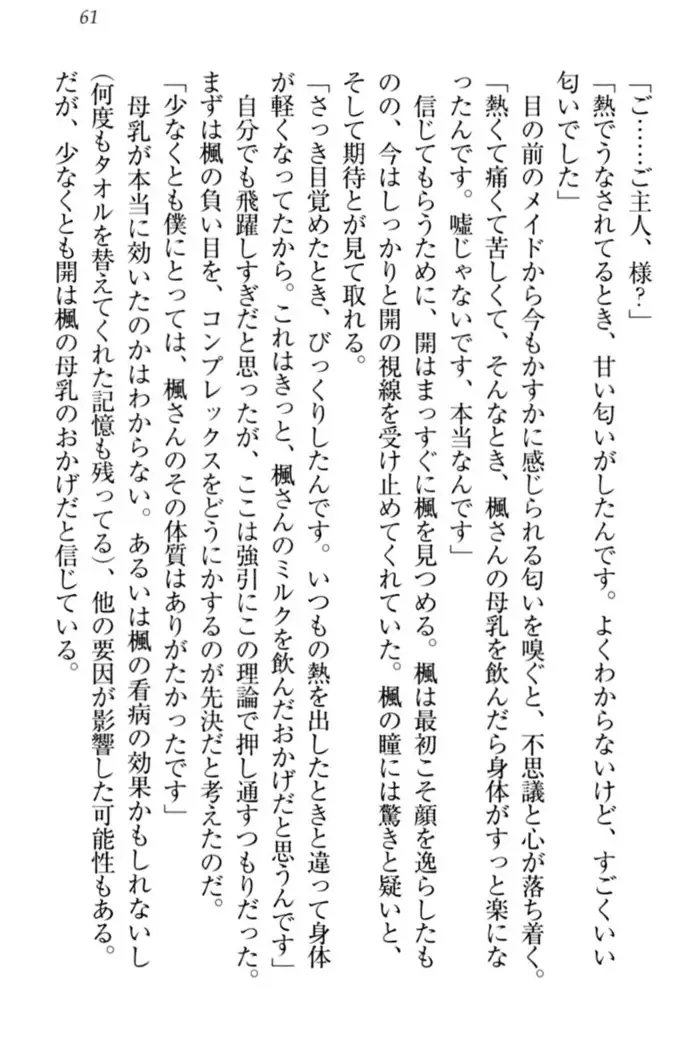 61
「ご……ご主人、様？」
「熱でうなされてるとき、甘い匂いがしたんです。よくわからないけど、すごくいい
匂いでした」
目の前のメイドから今もかすかに感じられる匂いを嗅ぐと、不思議と心が落ち着く。
「熱くて痛くて苦しくて、そんなとき、楓さんの母乳を飲んだら身体がすっと楽にな
ったんです。嘘じゃないです、本当なんです」
信じてもらうために、開はまっすぐに楓を見つめる。楓は最初こそ顔を逸らしたも
のの、今はしっかりと開の視線を受け止めてくれていた。楓の瞳には驚きと疑いと、
そして期待とが見て取れる。
「さっき目覚めたとき、びっくりしたんです。いつもの熱を出したときと違って身体
が軽くなってたから。これはきっと、楓さんのミルクを飲んだおかげだと思うんです」
自分でも飛躍しすぎだと思ったが、ここは強引にこの理論で押し通すつもりだった。
まずは楓の負い目を、コンプレックスをどうにかするのが先決だと考えたのだ。
「少なくとも僕にとっては、楓さんのその体質はありがたかったです」
母乳が本当に効いたのかはわからない。あるいは楓の看病の効果かもしれないし
（何度もタオルを替えてくれた記憶も残ってる）、他の要因が影響した可能性もある。
だが、少なくとも開は楓の母乳のおかげだと信じている。